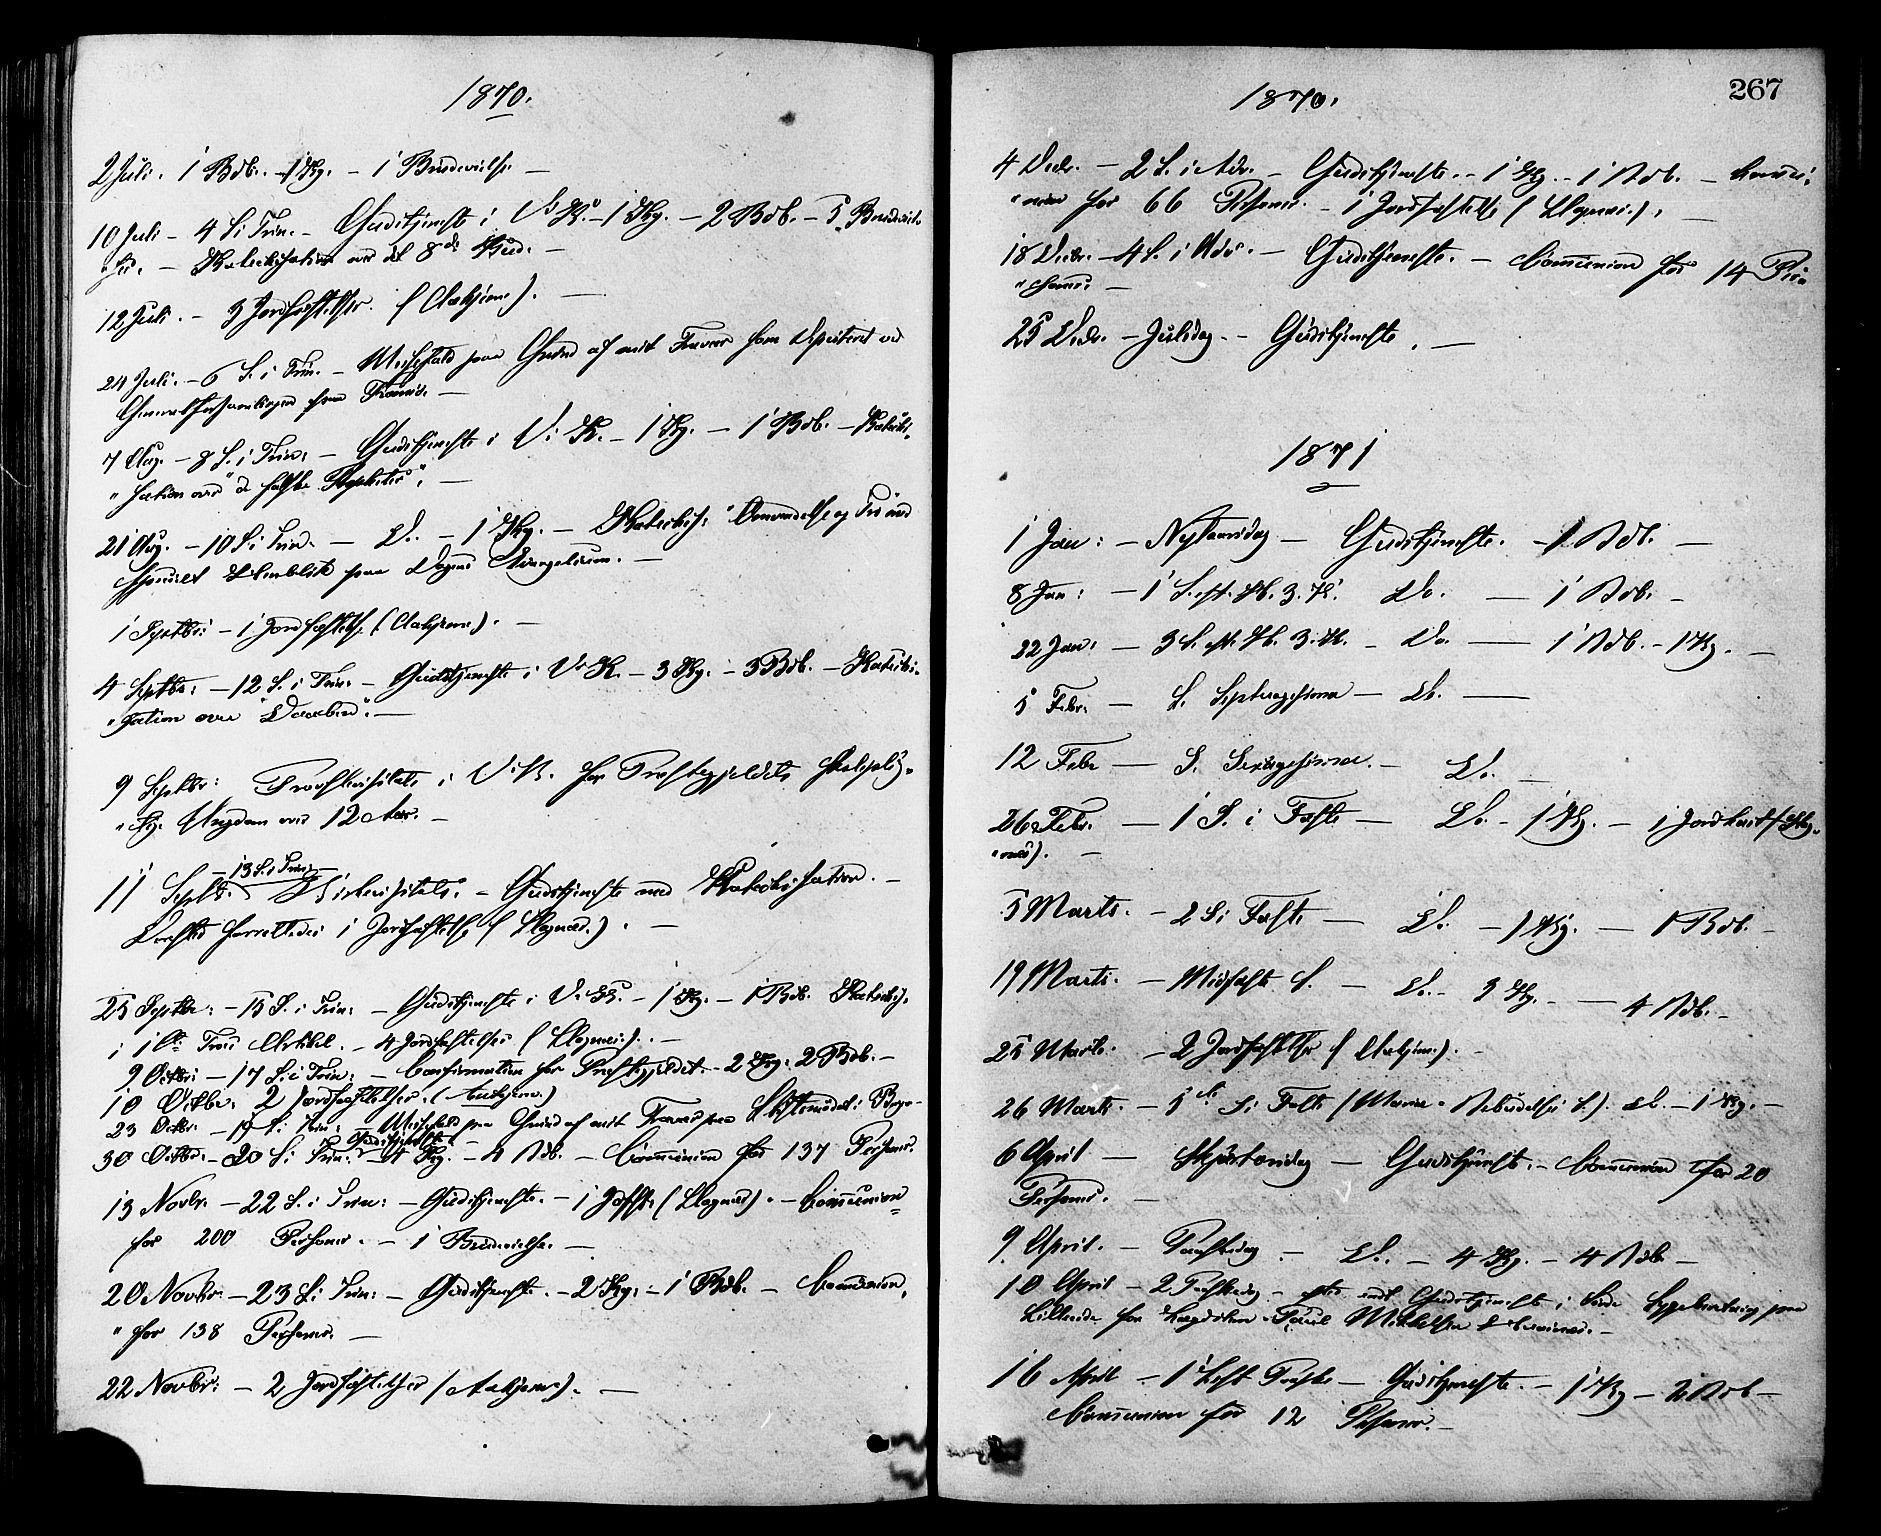 1870.
2 Juli. 1 Bdb. - 1 Kg. - 1 Brudevielse. -
10 Juli - 4 S. i Trin. - Gudstjeneste i V. K. - 1 Kg. - 2 Bdb. - 5 Brudeviel-
"ser. - Katechisation over det 8de Bud. -
12 Juli. - 3 Jordfæstelser (Aakjeim). -
24 Juli. - 6 S. i Trin. - Messefald paa Grund af mit Fravær som Deputeret ved
Generalforsamlingen paa
7 Aug. - 8 S. i Trin: - Gudstjeneste i V. K. - 1 Kg. - 1 Bdb. - Katechi-
"sation over "de falske Propheter". -
21 Aug. - 10 S. i Trin. - Do. - 1 Kg. - Katechis: Omvendelse og Tro med
specielt Henblik paa Dagens Evangelium. -
1 Septbr: - 1 Jordfæstelse (Aakjeim). -
4 Septbr: - 12 S. i Trin: - Gudstjeneste i V. K. - 3 Kg. - 3 Bdb. - Katechi-
"sation over Daaben". -
9 Septbr: Provstevisitats i V. K. for Præstegjeldets skolepligt-
"ige Ungdom over 12 Aar. -
- 13 S. i Trin: -
11 Septbr. - Gudstjeneste med Katechisation. -
Derefter forrettedes 1 Jordfæstelse (Vagnæs). -
25 Septbr: - 15 S. i Trin: - Gudstjeneste i V. K. - 1 Kg. - 1 Bdb. Katechis.
i 1ste Troes Artikel. - 4 Jordfæstelser (Vagnæs). -
9 Octbr: - 17 S. i Trin: - Confirmation for Præstegjeldet. - 2 Kg. 2 Bdb. -
10 Octbr. 2 Jordfæstelser. (Aakjeim)
23 Octbr. - 19 S. i Trin: - Messefald paa Grund af mit Fravær paa
Gudstjeneste -
30 Octbr. - 20 S. i Trin: - 4 Kg. - 4 Bdb. - Communion for 137 Personer.
13 Novbr. - 22 S. i Trin: - Gudstjeneste. - 1 Jdfst. (Vagnæs). - Communion
for 200 Personer. - 1 Brudevielse. -
20 Novbr. - 23 S. i Trin: - Gudstjeneste. - 2 Kg. - 1 Bdb. - Communion
" for 138 Personer. -
22 Novbr: - 2 Jordfæstelser (Aakjeim). -
267
1870.
4 Decbr. - 2 S. i Adv. - Gudstjeneste. - 1 Kg. - 1 Bdb. - Commu-
"nion for 66 Personer. - 1 Jordfæstelse (Vagnæs). -
18 Decbr. - 4 S. i Adv. - Gudstjeneste. - Communion for 14 Per-
"soner. -
25 Decbr. - Juledag. - Gudstjeneste. -
1871
1 Jan: - Nytaarsdag - Gudstjeneste. - 1 Bdb. -
8 Jan: - 1 S. eft. H. 3. K. Do. - 1 Bdb. -
22 Jan: - 3 S. eft. H. 3. K. - Do. - 1 Bdb. - 1 Kg. -
5 Febr: - S. Septuagesima - Do. -
12 Febr - S. Sexagesima. - Do. -
26 Febr. - 1 S. i Faste - Do. - 1 Kg. - 1 Jordfæst. (Vag-
"næs). -
5 Marts. - 2 S. i Faste - Do. - 1 Kg. - 1 Bdb. -
19 Marts. - Midfaste S. - Do. - 3 Kg. - 4 Bdb. -
25 Marts. - 2 Jordfæstelser (Aakjeim). -
26 Marts. - 5te S. i Faste (Mariæ Bebudelses S.). Do. - 1 Kg. -
6 April - Skjærtorsdag - Gudstjeneste. - Communion for 20
Personer. -
9 April. - Paaskedag - Do. - 4 Kg. - 4 Bdb -
10 April - 2 Paaskedag - efter endt Gudstjeneste i Sygeberetning paa
for Paul
16 April - 1 S. eft Paaske - Gudstjeneste. - 1 Kg - 2 Bdb -
Communion for 12 Personer. -